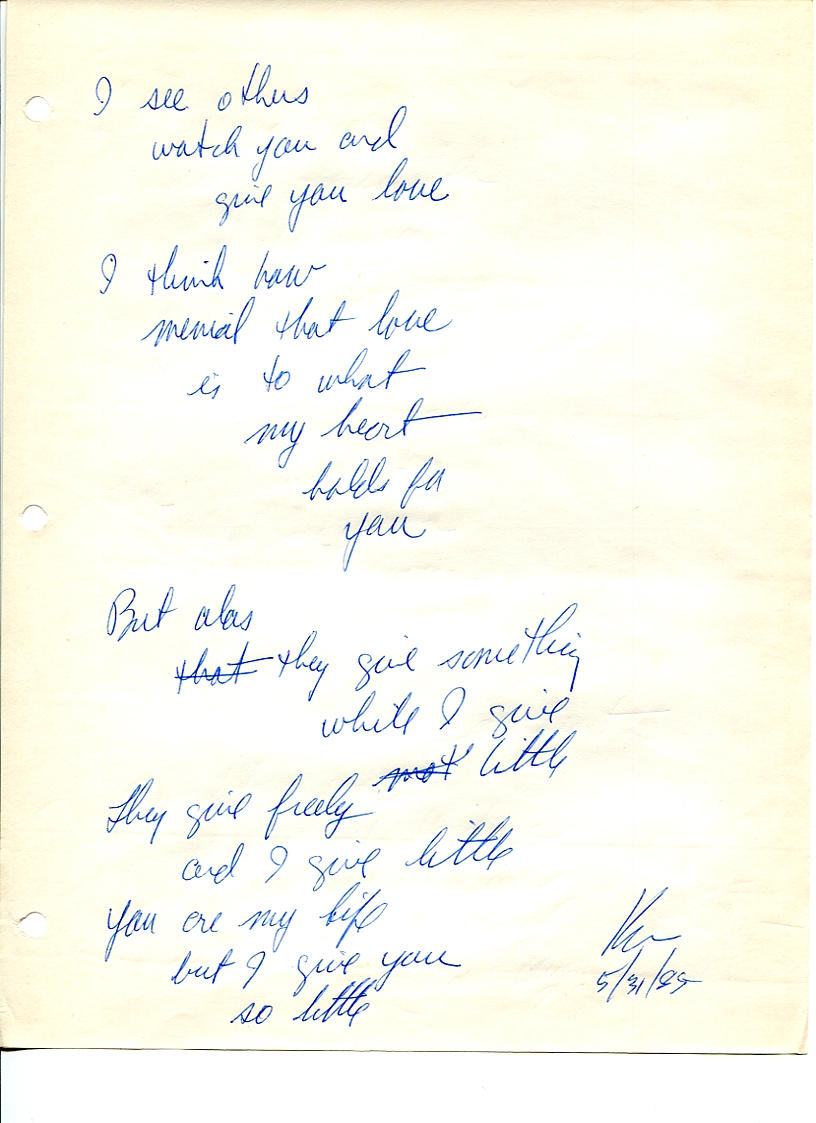 I see others
watch you and
give you love
I think how
menial that love
is to what
my heart
holds for
you
But alas
that they give something
while I give
not little
They give freely
and I give little
you are my life
but I give you
so little
5/31/